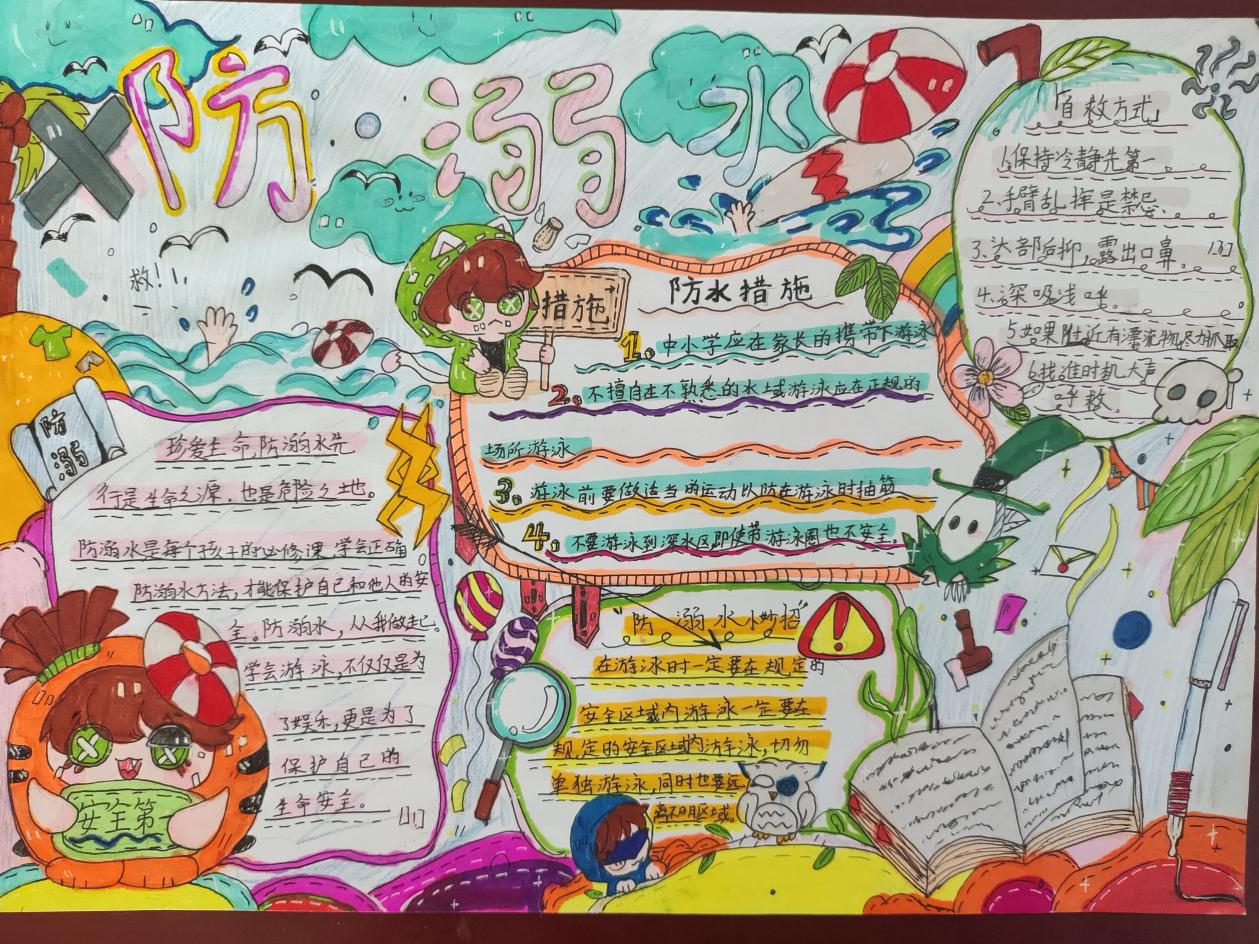 防溺水
救!!
措施
防水措施
1.中小学应在家长的携带下游泳
2.不擅自在不熟悉的水域游泳应在正规的
场所游泳
3.游泳前要做适当的运动以防在游泳时抽筋
4.不要游泳到深水区即使带游泳圈也不安全。
「自救方式」
1.保持冷静先第一
2.手臂乱挥是禁忌
3.头部后抑,露出口鼻。
4.深吸浅呼。
5.如果附近有漂流物尽力抓取
6.找准时机大声
呼救。
防溺
珍爱生命,防溺水先
行是生命之源,也是危险之地。
防溺水是每个孩子的必修课,学会正确
防溺水方法,才能保护自己和他人的安
全。防溺水,从我做起。
学会游泳,不仅仅是为
了娱乐,更是为了
保护自己的
生命安全。
安全第一
"防溺水小妙招"
在游泳时一定要在规定的
安全区域内游泳一定要在
规定的安全区域内游泳,切勿
单独游泳,同时也要远
离不明区域。